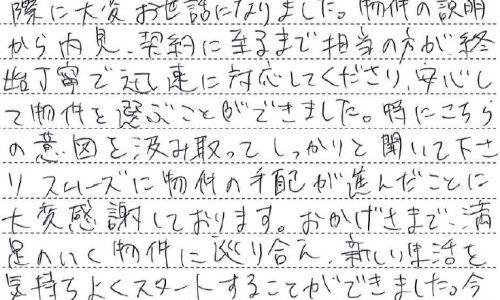 際に大変お世話になりました。物件の説明
から内見、契約に至るまで担当の方が終
始丁寧で迅速に対応してくださり、安心し
て物件を選ぶことができました。特にこちら
の意図を汲み取ってしっかりと聞いて下さ
りスムーズに物件の手配が進んだことに
大変感謝しております。おかげさまで、満
足のいく物件に巡り合え、新しい生活を
気持ちよくスタートすることができました。今